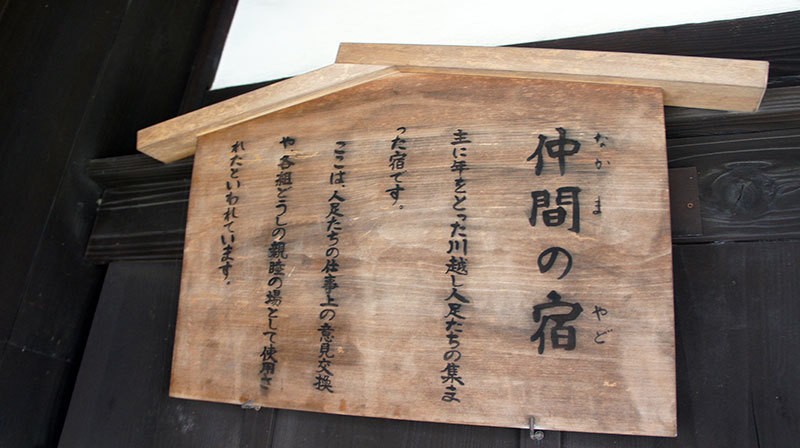 仲間の宿
なかま やど
主に年をとった川越し人足たちの集ま
った宿です。
ここは、人足たちの仕事上の意見交換
や、各組どうしの親睦の場として使用さ
れたといわれています。